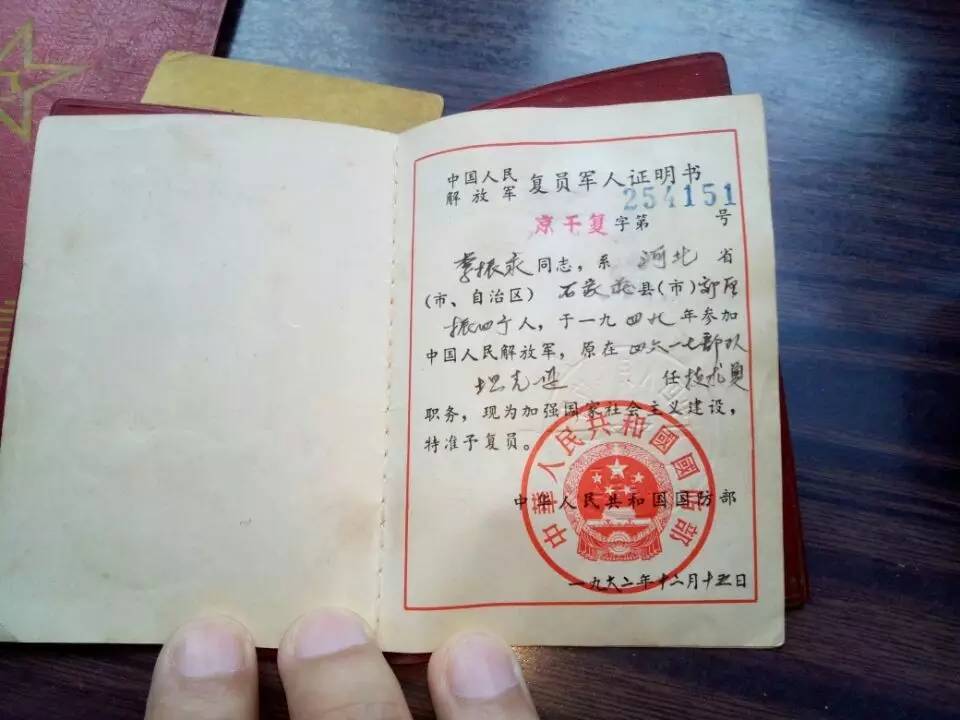 中国人民解放军 复员军人证明书
254151
京干复字第 号
李振永同志，系 河北 省
（市、自治区） 石家庄县（市）
振四屯人，于一九四九年参加
中国人民解放军，原在四六一七部队
坦克连 任技术员
职务，现为加强国家社会主义建设，
特准予复员。
中華人民共和國國防部
中华人民共和国国防部
一九六二年十二月十五日